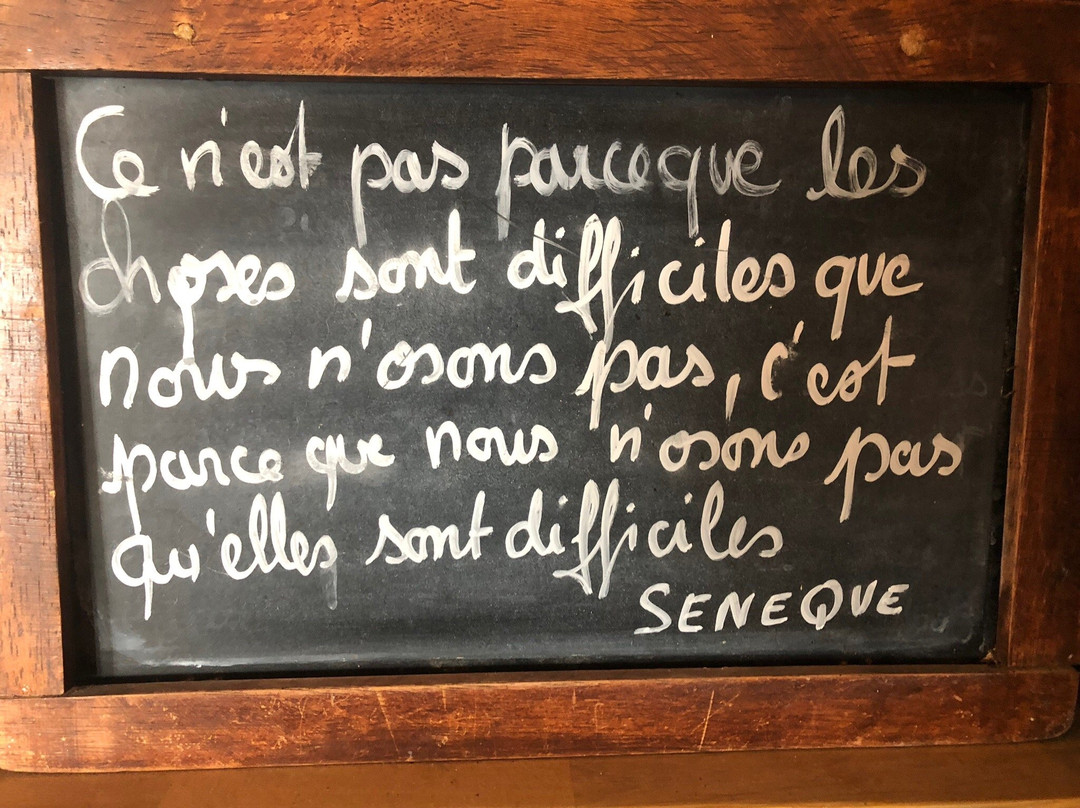 Ce n'est pas parceque les
choses sont difficiles que
nous n'osons pas, c'est
parce que nous n'osons pas
qu'elles sont difficiles
SENEQUE